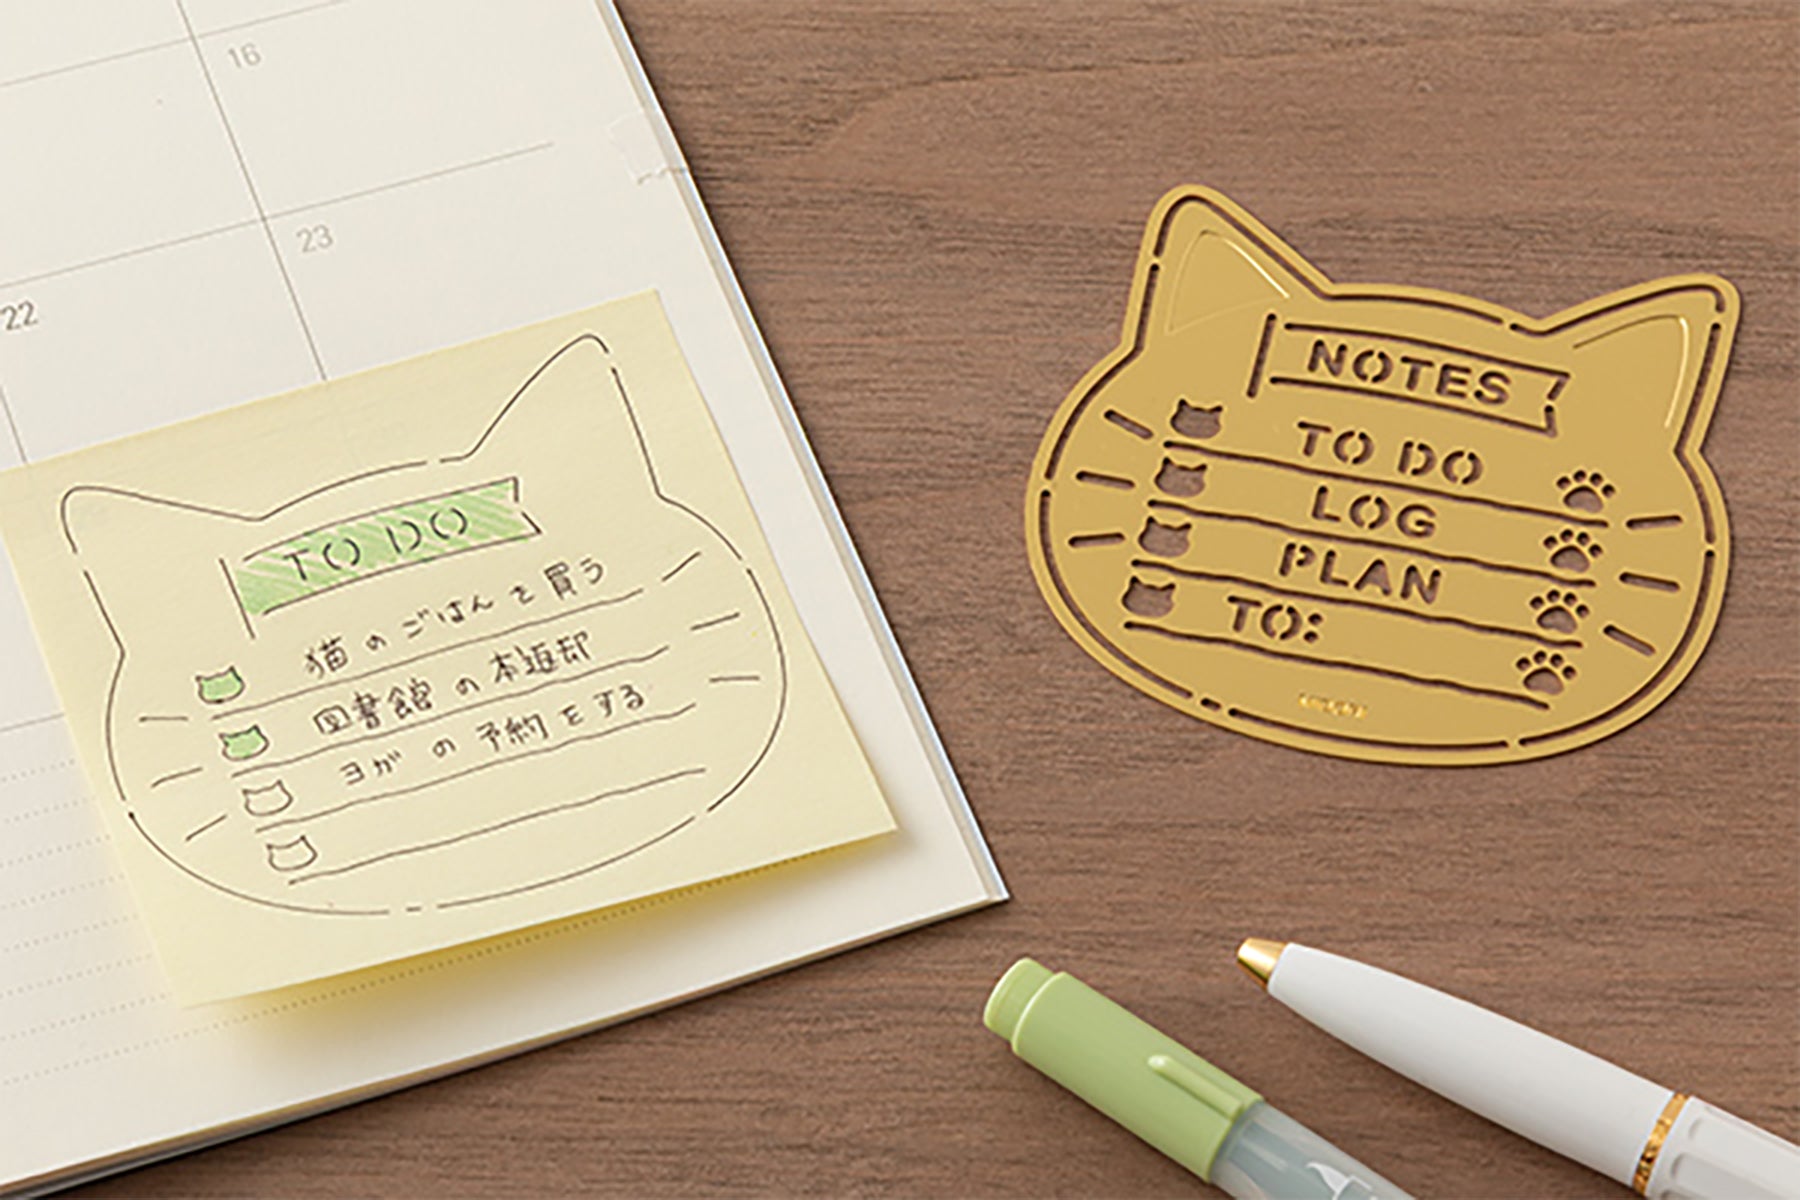 16
23
22
TO DO
猫のごはんを買う
図書館の本返却
ヨガの予約をする
NOTES
TO DO
LOG
PLAN
TO: